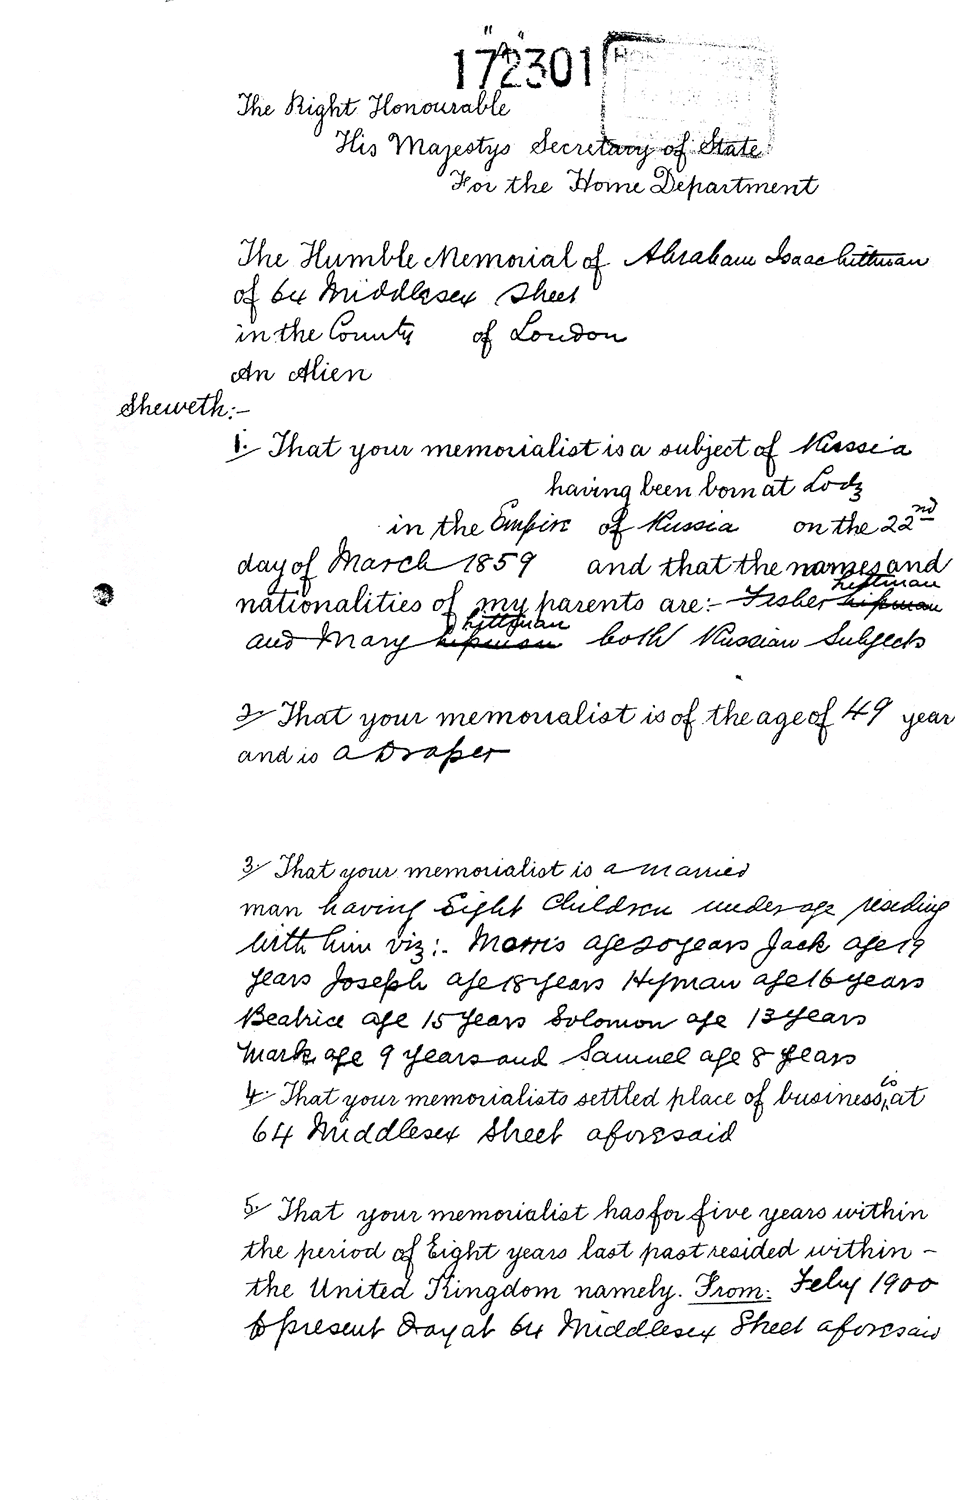 172301
The Right Honourable
His Majestys Secretary of State
For the Home Department
The Humble Memorial of Abraham Isaac Littman
of 64 Middlesex Street
in the County of London
An Alien
Sheweth:-
1. That your memorialist is a subject of Russia
having been born at Lodz
in the Empire of Russia on the 22nd
day of March 1859 and that the names and
Littman
nationalities of my parents are:- Fisher Lipman
Littman
and Mary Lipman both Russian Subjects
2. That your memorialist is of the age of 49 year
and is a Draper
3. That your memorialist is a married
man having Eight Children under age residing
with him viz:. Morris age 20 years Jack age 19
years Joseph age 18 years Hyman age 16 years
Beatrice age 15 years Solomon age 13 years
Mark age 9 years and Samuel age 8 years
4. That your memorialists settled place of business is at
64 Middlesex Street aforesaid
5. That your memorialist has for five years within
the period of Eight years last past resided within -
the United Kingdom namely. From: Feby 1900
to present Day at 64 Middlesex Street aforesaid